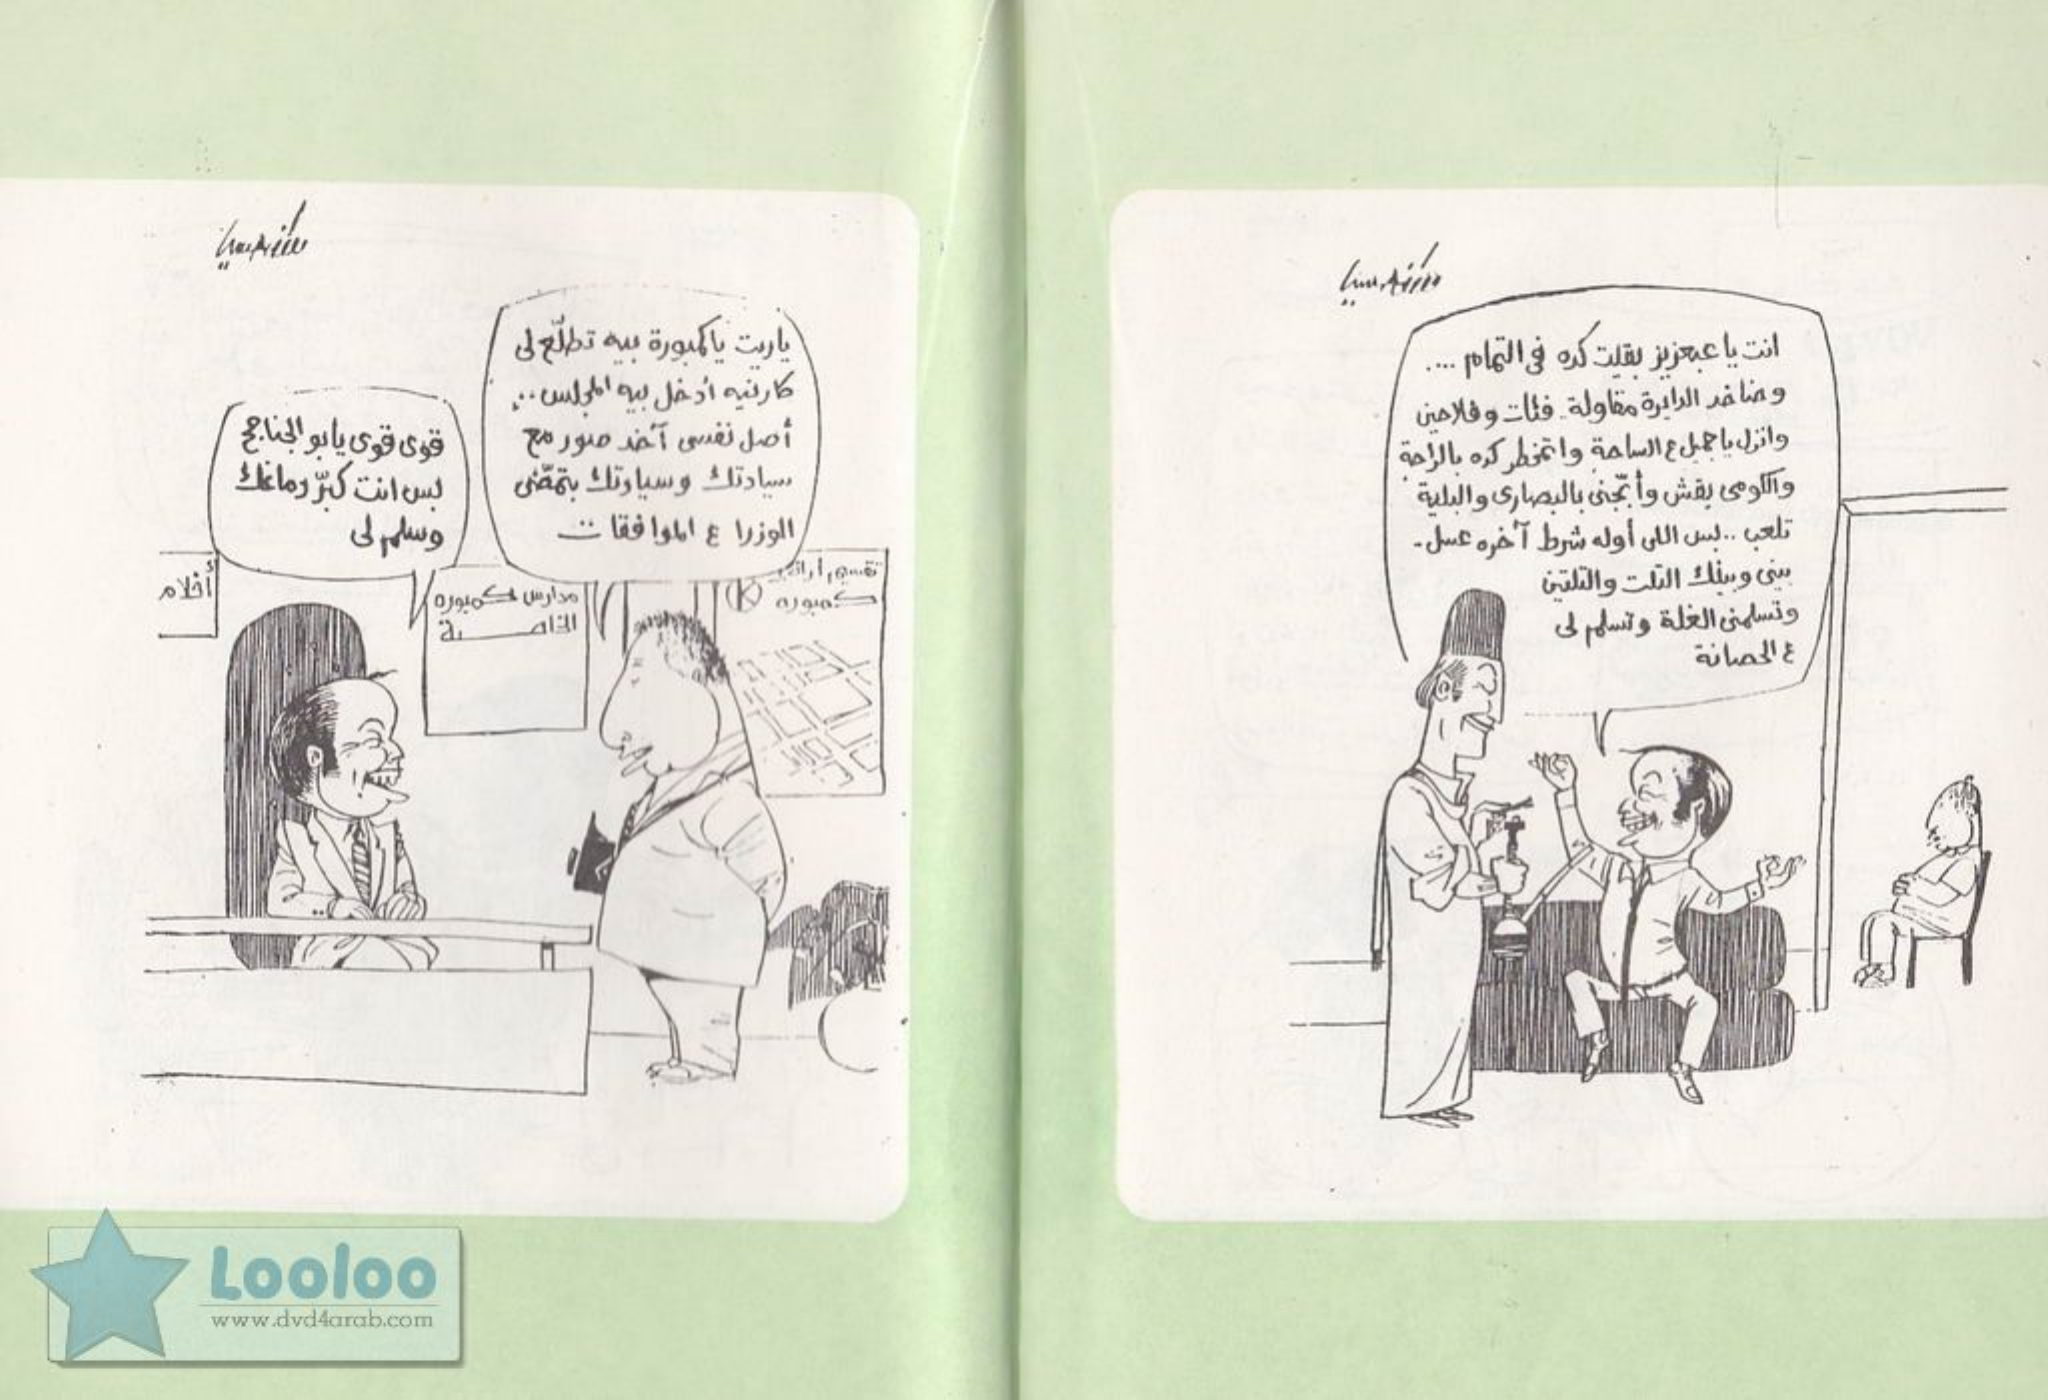 انت يا عبعزيز بقيت كده فى التمام ....
وهناخد الدايرة مقاولة.. فئات وفلاحين
وانزل يا جميل ع الساحة واتمخطر كده بالراحة
والكومى يقش وأبجنى بالبصارى والبلية
تلعب .. بس اللى أوله شرط آخره عسل -
بينى وبينك التلت والتلتين
وتسلمنى الغلة وتسلم لى
ع الحصانة
ياريت ياكمبورة بيه تطلّع لى
كارنيه أدخل بيه المجلس ...
أصل نفسى آخد صور مع
سيادتك وسيادتك بتمضّى
الوزرا ع الموافقات
قوى قوى يابو الجناجح
بس انت كبّر دماغك
وسلم لى
تقسيم أراضى
كمبوره
K
مدارس كمبوره
الخاصة
أفلام
Looloo
www.dvd4arab.com